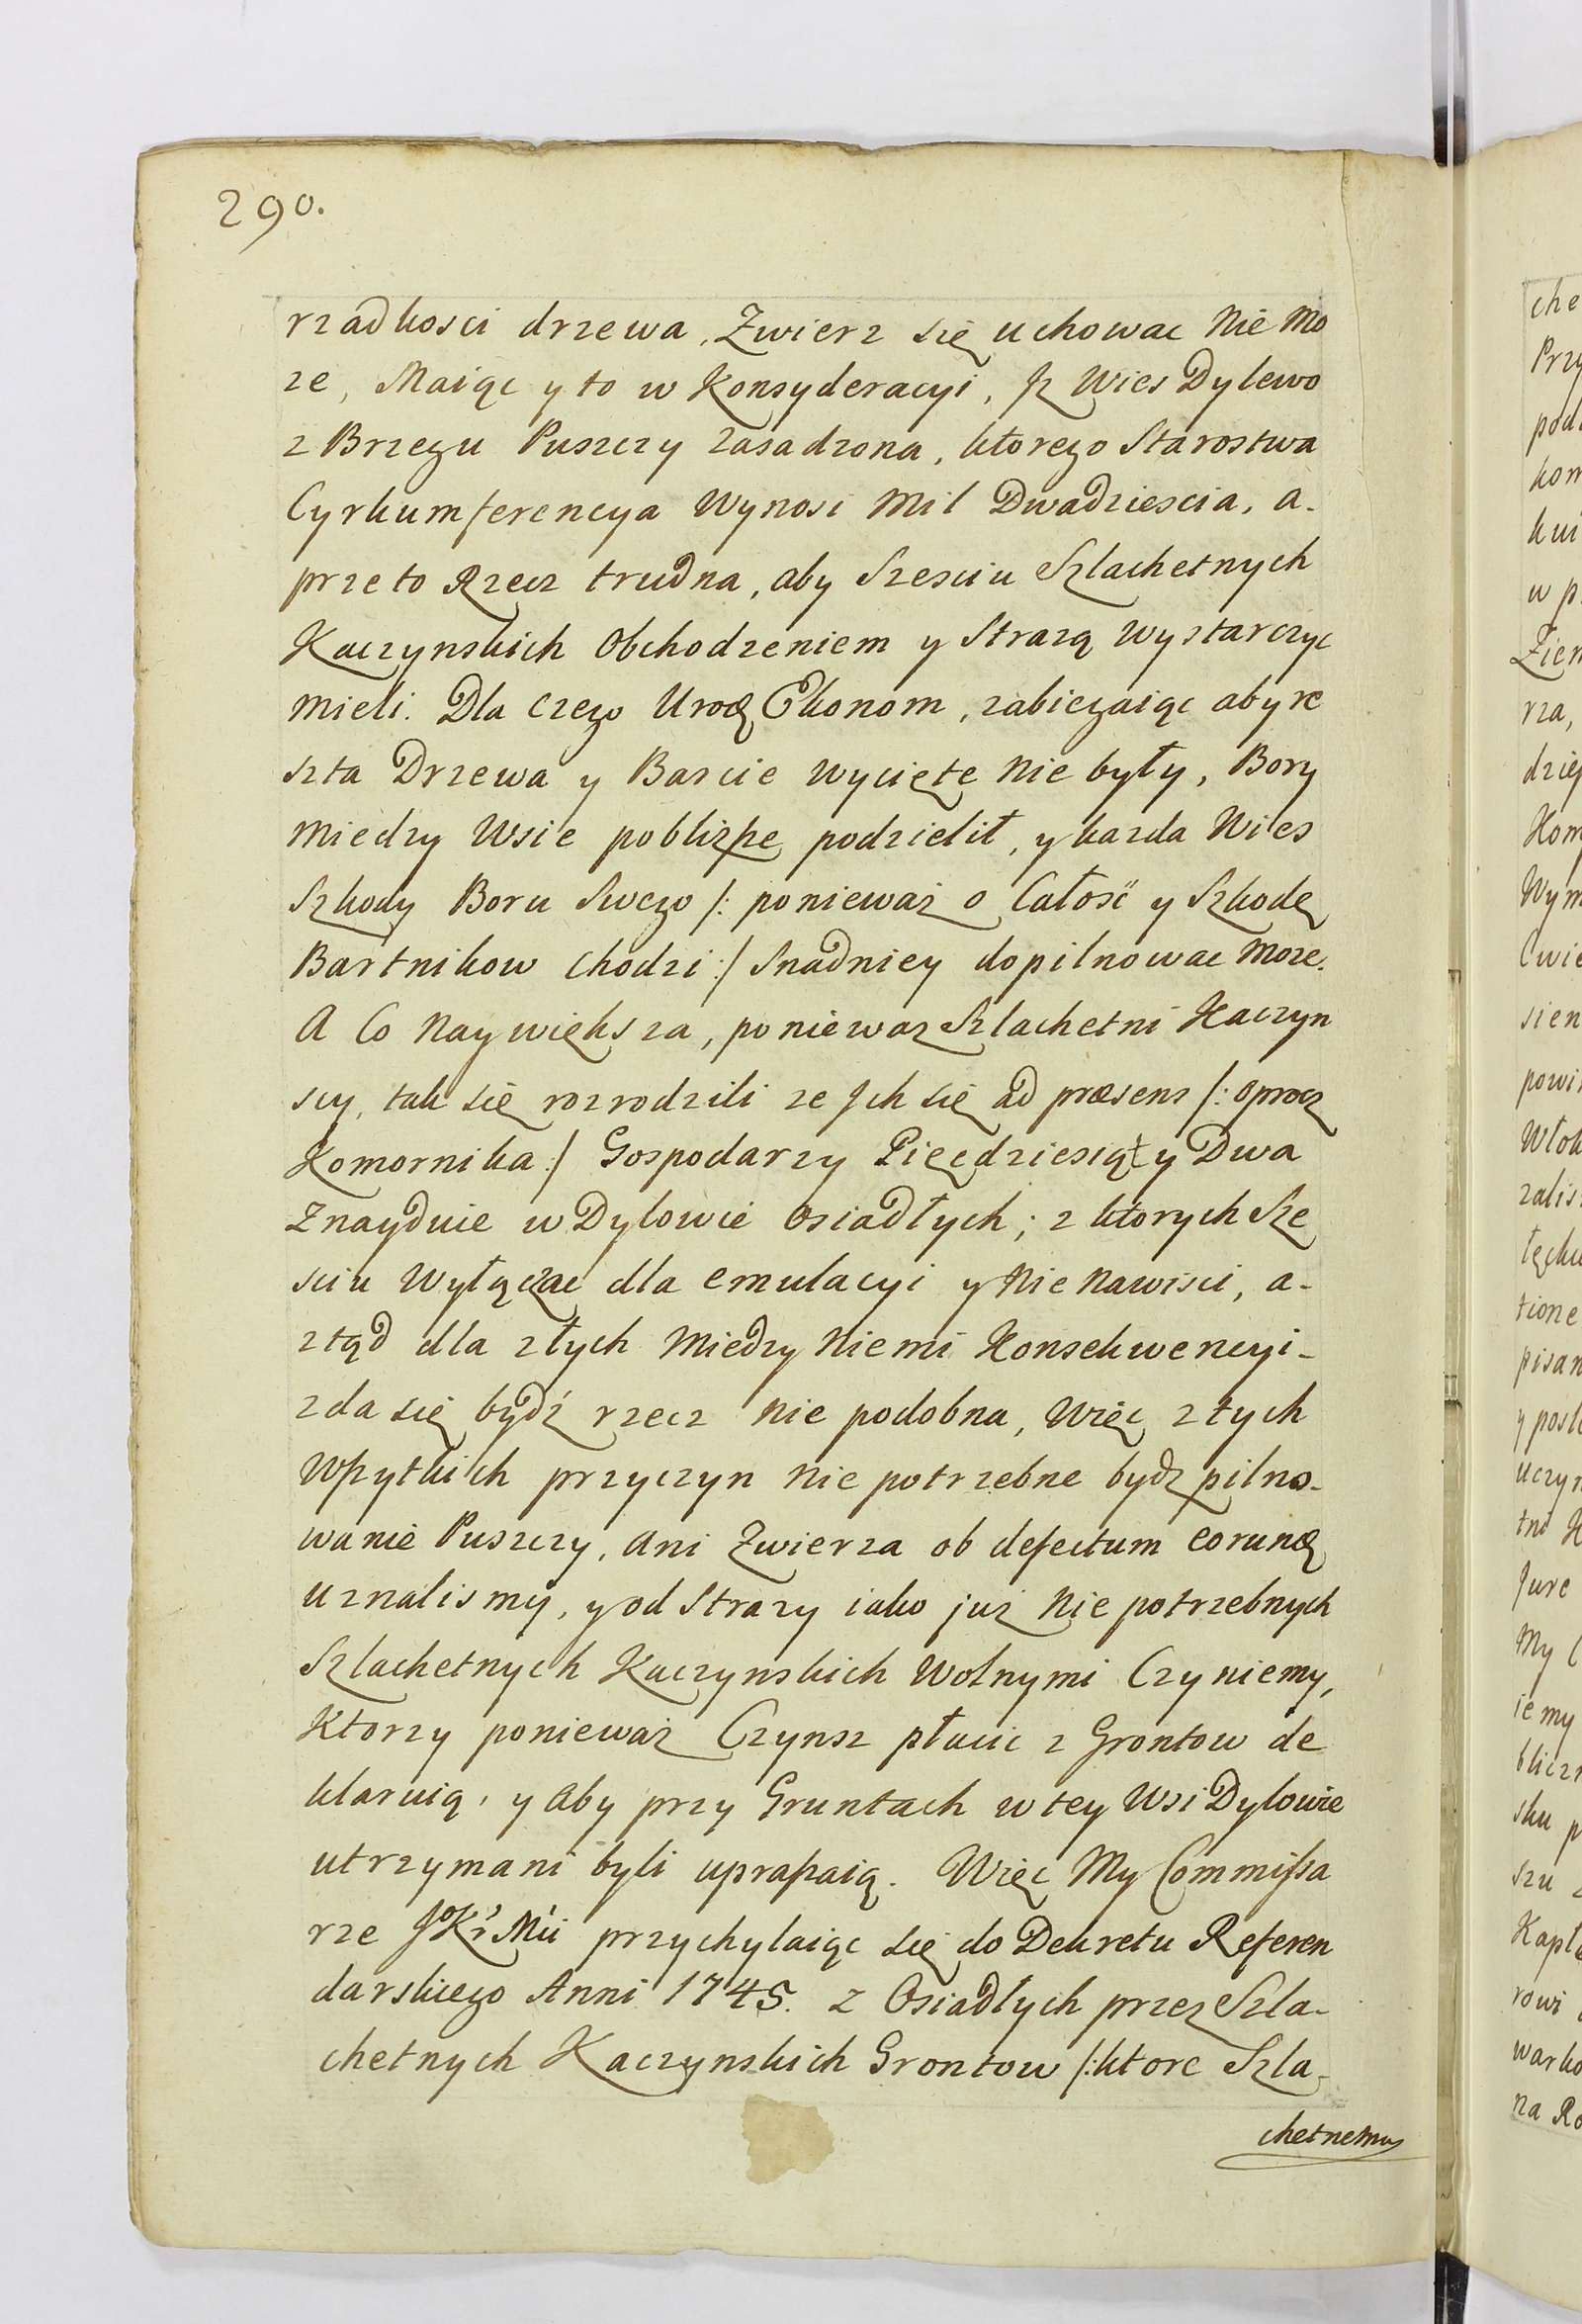 290.
rzadkosci drzewa, Zwierz się uchowac Nie Mo
ze, Maiąc y to w Konsyderacyi, Jz Wies Dylewo
z Brzegu Puszczy zasadzona, ktorego Starostwa
Cyrkumferencya Wynosi Mil Dwadziescia, a-
przeto Rzecz trudna, aby Szesciu Szlachetnych
Kaczynskich Obchodzeniem y Strazą Wystarczyc
mieli. Dla czego Uroę Ekonom, zabiegaiąc aby re
szta Drzewa y Barcie Wycięte Nie były, Bory
Miedzy Wsie poblizsze podzielił, y kazda Wies
Szkody Boru Swego /: poniewaz o Całosć y Szkodę
Bartnikow chodzi :/ Snadniey dopilnowac Moze.
A Co Naywiększa, poniewaz Szlachetni Kaczyn
scy, tak się rozrodzili ze Jch się ad præsens /: oprocz
Komornika :/ Gospodarzy Pięcdziesiąt y Dwa
Znayduie w Dylowie Osiadłych; z ktorych Sze
sciu Wyłączac dla emulacyi y Nie Nawisci, a-
ztąd dla złych Miedzy Niemi Konsekwencyi-
zda się bydź rzecz Nie podobna, Więc z tych
Wszytkich przyczyn Nie potrzebne bydz pilno-
wanie Puszczy, ani Zwierza ob defectum eorunę
Uznalismy, y od Strazy iako juz Nie potrzebnych
Szlachetnych Kaczynskich Wolnymi Czyniemy,
Ktorzy poniewaz Czynsz płacic z Grontow de
klaruią, y aby przy Gruntach w tey Wsi Dylowie
utrzymani byli upraszaią. Więc My Commissa
rze JoKr Mci przychylaiąc się do Dekretu Referen
darskiego Anni 1745. z Osiadłych przez Szla-
chetnych Kaczynskich Grontow /: ktore Szla-
chetnemu
che
Prz
pod
kom
kui
w p
Zie
rza,
dzię
Kom
Wym
Cwie
sien
powi
Włok
zalis
łęcku
tione
pisan
y posł
Uczyn
tni K
Jure
My C
iemy
blicz
sku p
szu
Kapł
rowi
warko
na Ro